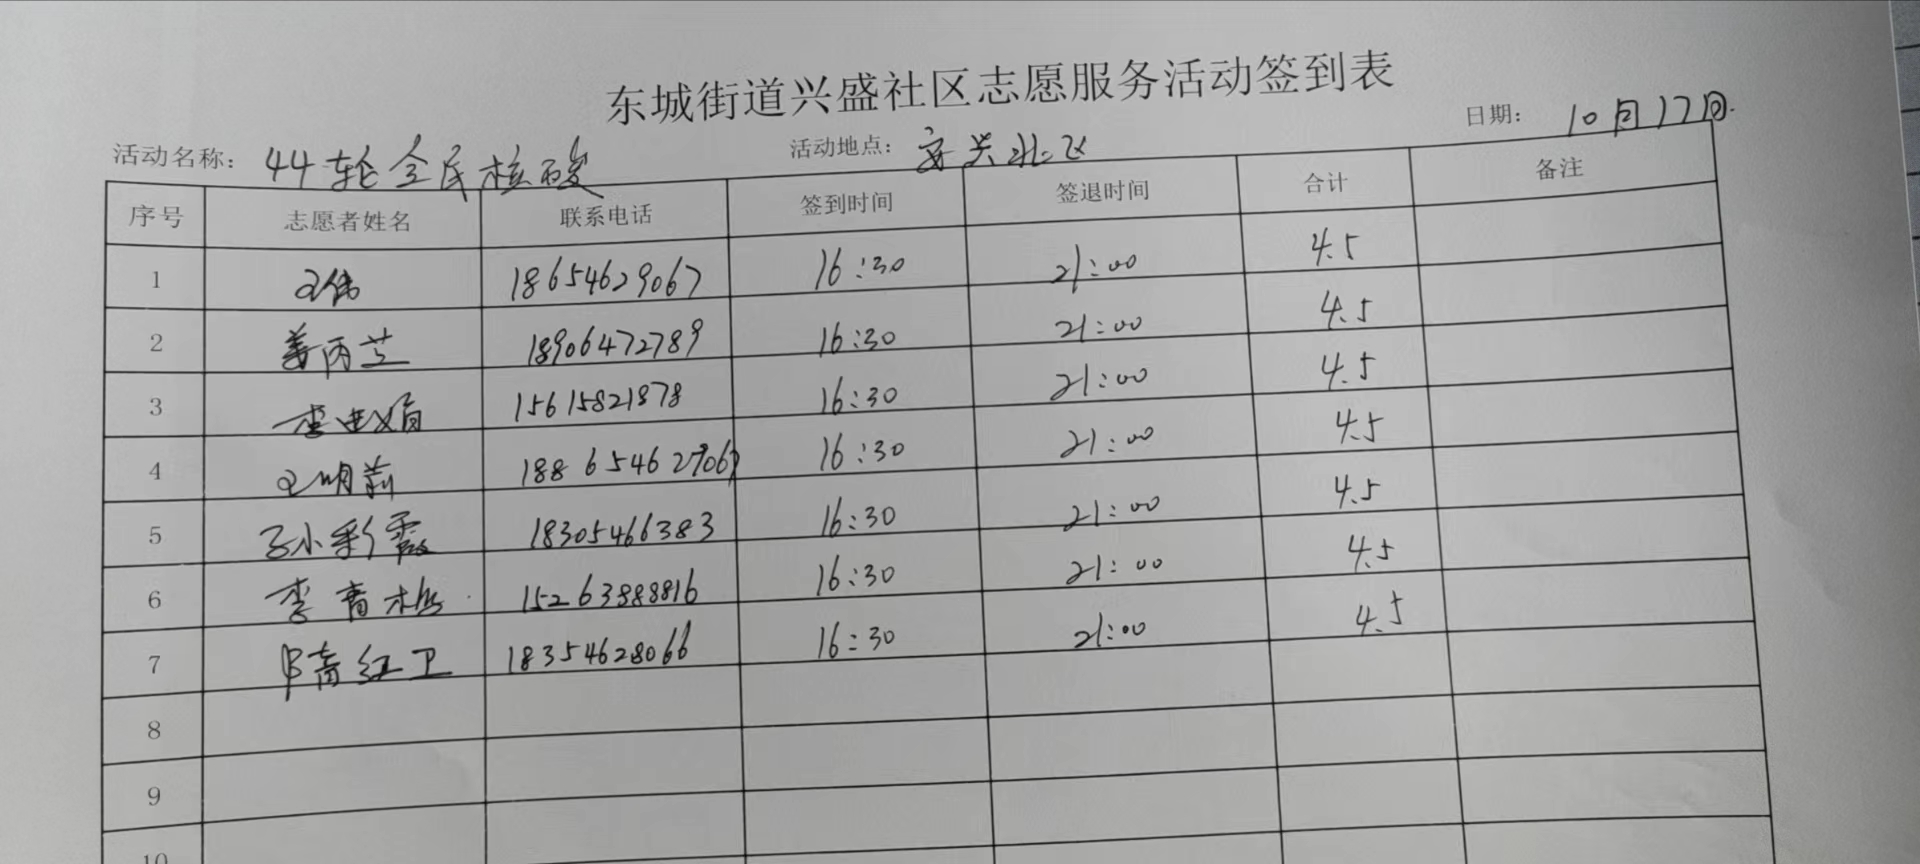 东城街道兴盛社区志愿服务活动签到表
活动名称： 44轮全民核酸 活动地点： 安兴北区 日期： 10月17日.
序号 志愿者姓名 联系电话 签到时间 签退时间 合计 备注
1 王伟 18654629067 16:30 21:00 4.5
2 姜丙芝 18906472789 16:30 21:00 4.5
3 李 娟 15615821878 16:30 21:00 4.5
4 王明莉 18865462906 16:30 21:00 4.5
5 孙彩霞 18305466383 16:30 21:00 4.5
6 李青 15263888816 16:30 21:00 4.5
7 红卫 18354628066 16:30 21:00 4.5
8
9
10